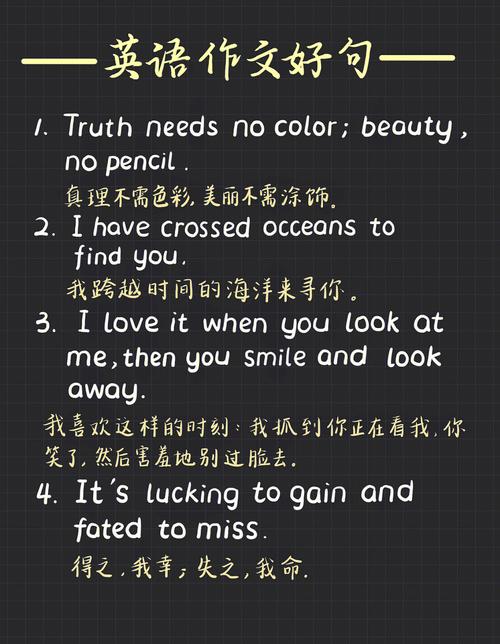 英语作文好句
1. Truth needs no color; beauty,
no pencil.
真理不需色彩,美丽不需涂饰。
2. I have crossed occeans to
find you.
我跨越时间的海洋来寻你。
3. I love it when you look at
me,then you smile and look
away.
我喜欢这样的时刻:我抓到你正在看我,你
笑了,然后害羞地别过脸去。
4. It's lucking to gain and
fated to miss.
得之,我幸;失之,我命.